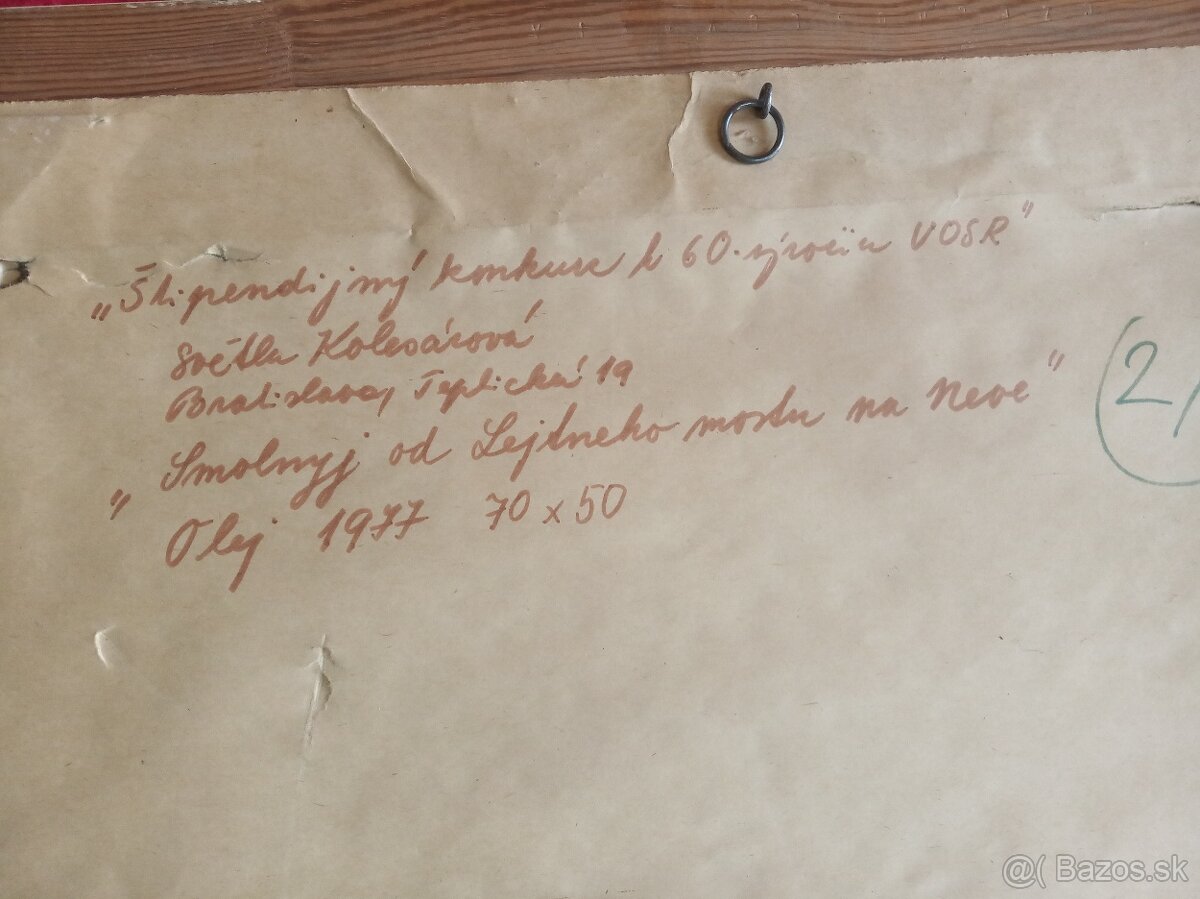 „Štipendijný konkurz k 60. výročiu VOSR"
Světla Kolesárová
Bratislava, Teplická 19
„Smolnyj od Lejtneho mostu na Neve"
Olej 1977 70 x 50
2,
@( Bazos.sk